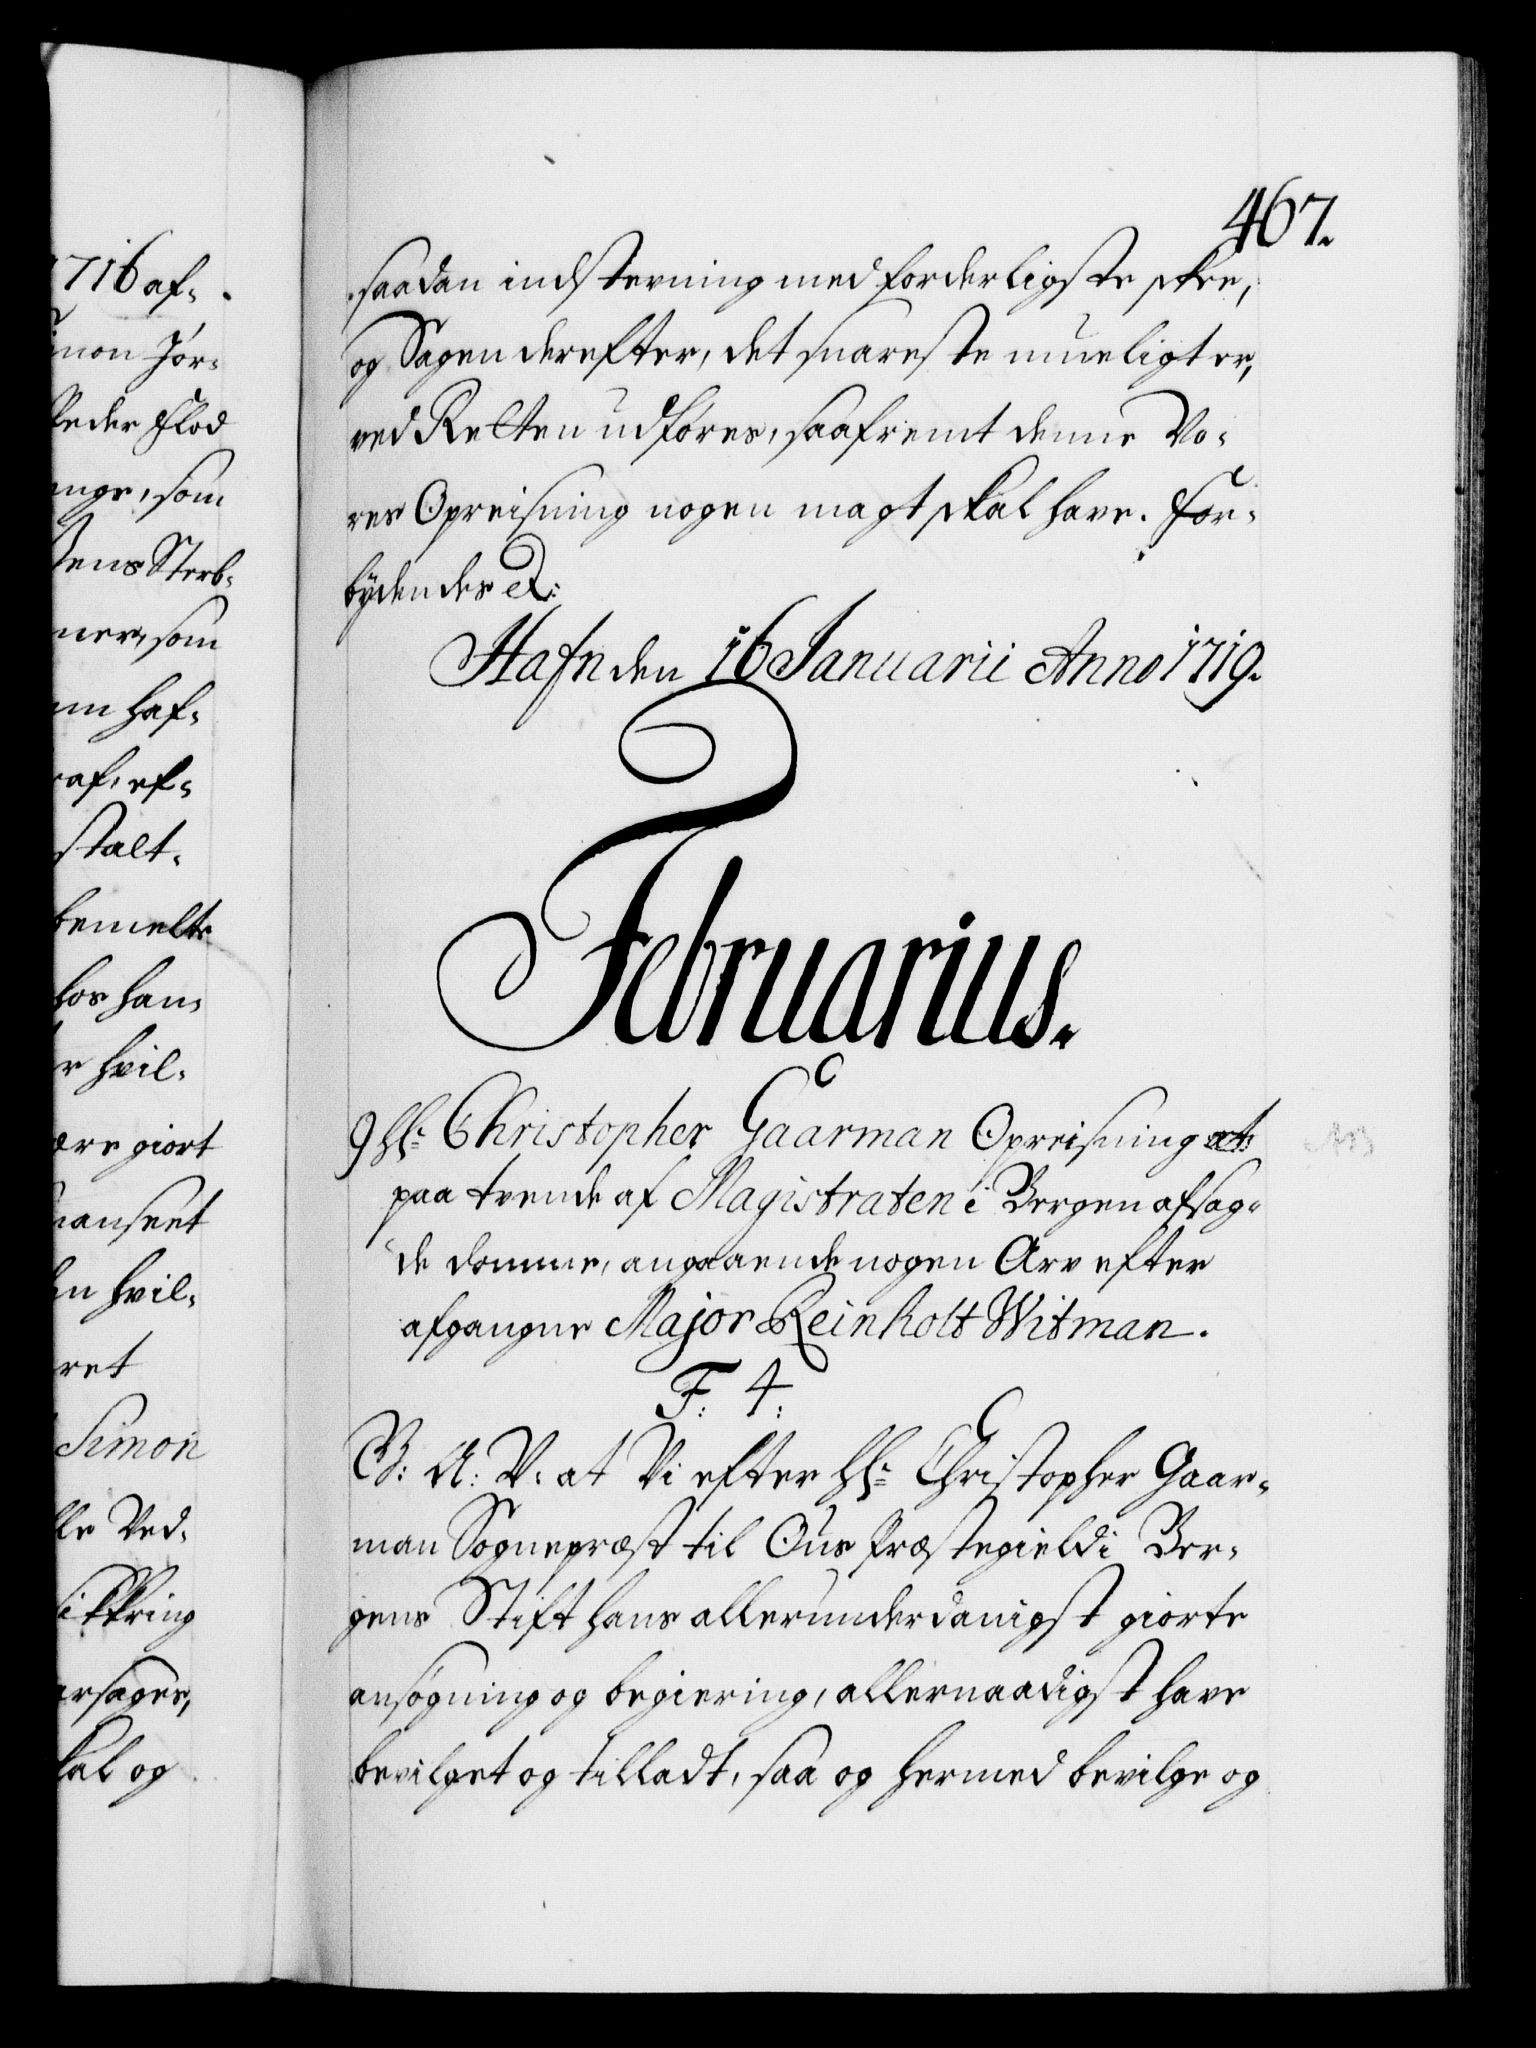 467.
saadan indstevning med forderligste skee,
og Sagen derefter, det snareste mueligt er,
ved Retten udføres, saafremt denne Vo-
res Opreisning nogen magt skal have. For-
bydendes &:
Hafn den 16 Januarii Anno 1719.
Februarius.
9 Hr: Christopher Gaarman Opreisning
paa tvende af Magistraten i Bergen afsag-
de domme, angaaende nogen Arv efter
afgangne Major Reinholt Witman.
F: 4:
G: A: V: at Vi efter Hr: Christopher Gaar-
man Sognepræst til Ous Præstegield i Ber-
gens Stift hans allerunderdanigst giorte
ansøgning og begiering, allernaadigst have
bevilget og tilladt, saa og hermed bevilge og
1716 af-
Jør-
Peder Flod
som
Sterb-
som
haf-
af, ef-
stalt-
bemelte
hos han-
hvil-
giort
anseet
hvil-
ret
Simon
Ved-
og